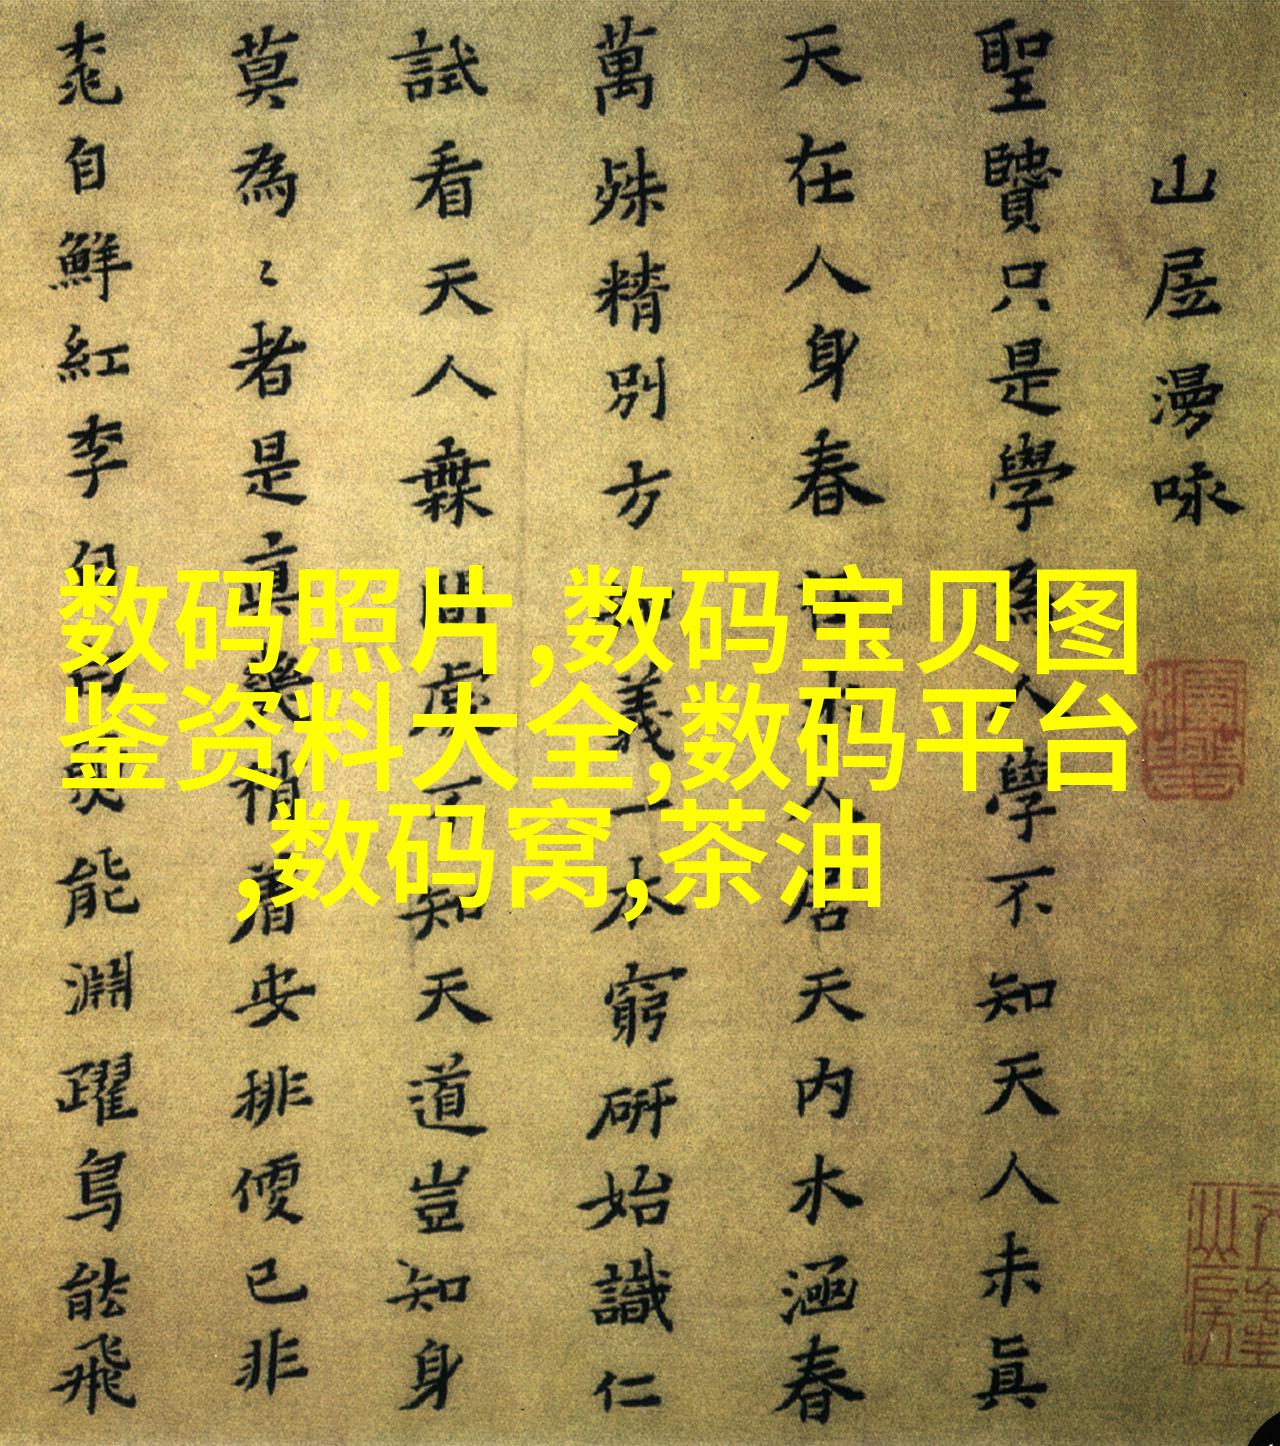 山居漫咏
聖賢只是學為人學不知天人未眞
天在人身春木人居天内水涵春
萬殊精別方義一本窮研始識仁
試看天人無間處不知天道豈知身
莫為〻者是眞機着安排便已非
桃自鮮紅李自能淵躍鳥能飛
数码照片,数码宝贝图
鉴资料大全,数码平台
,数码窝,茶油